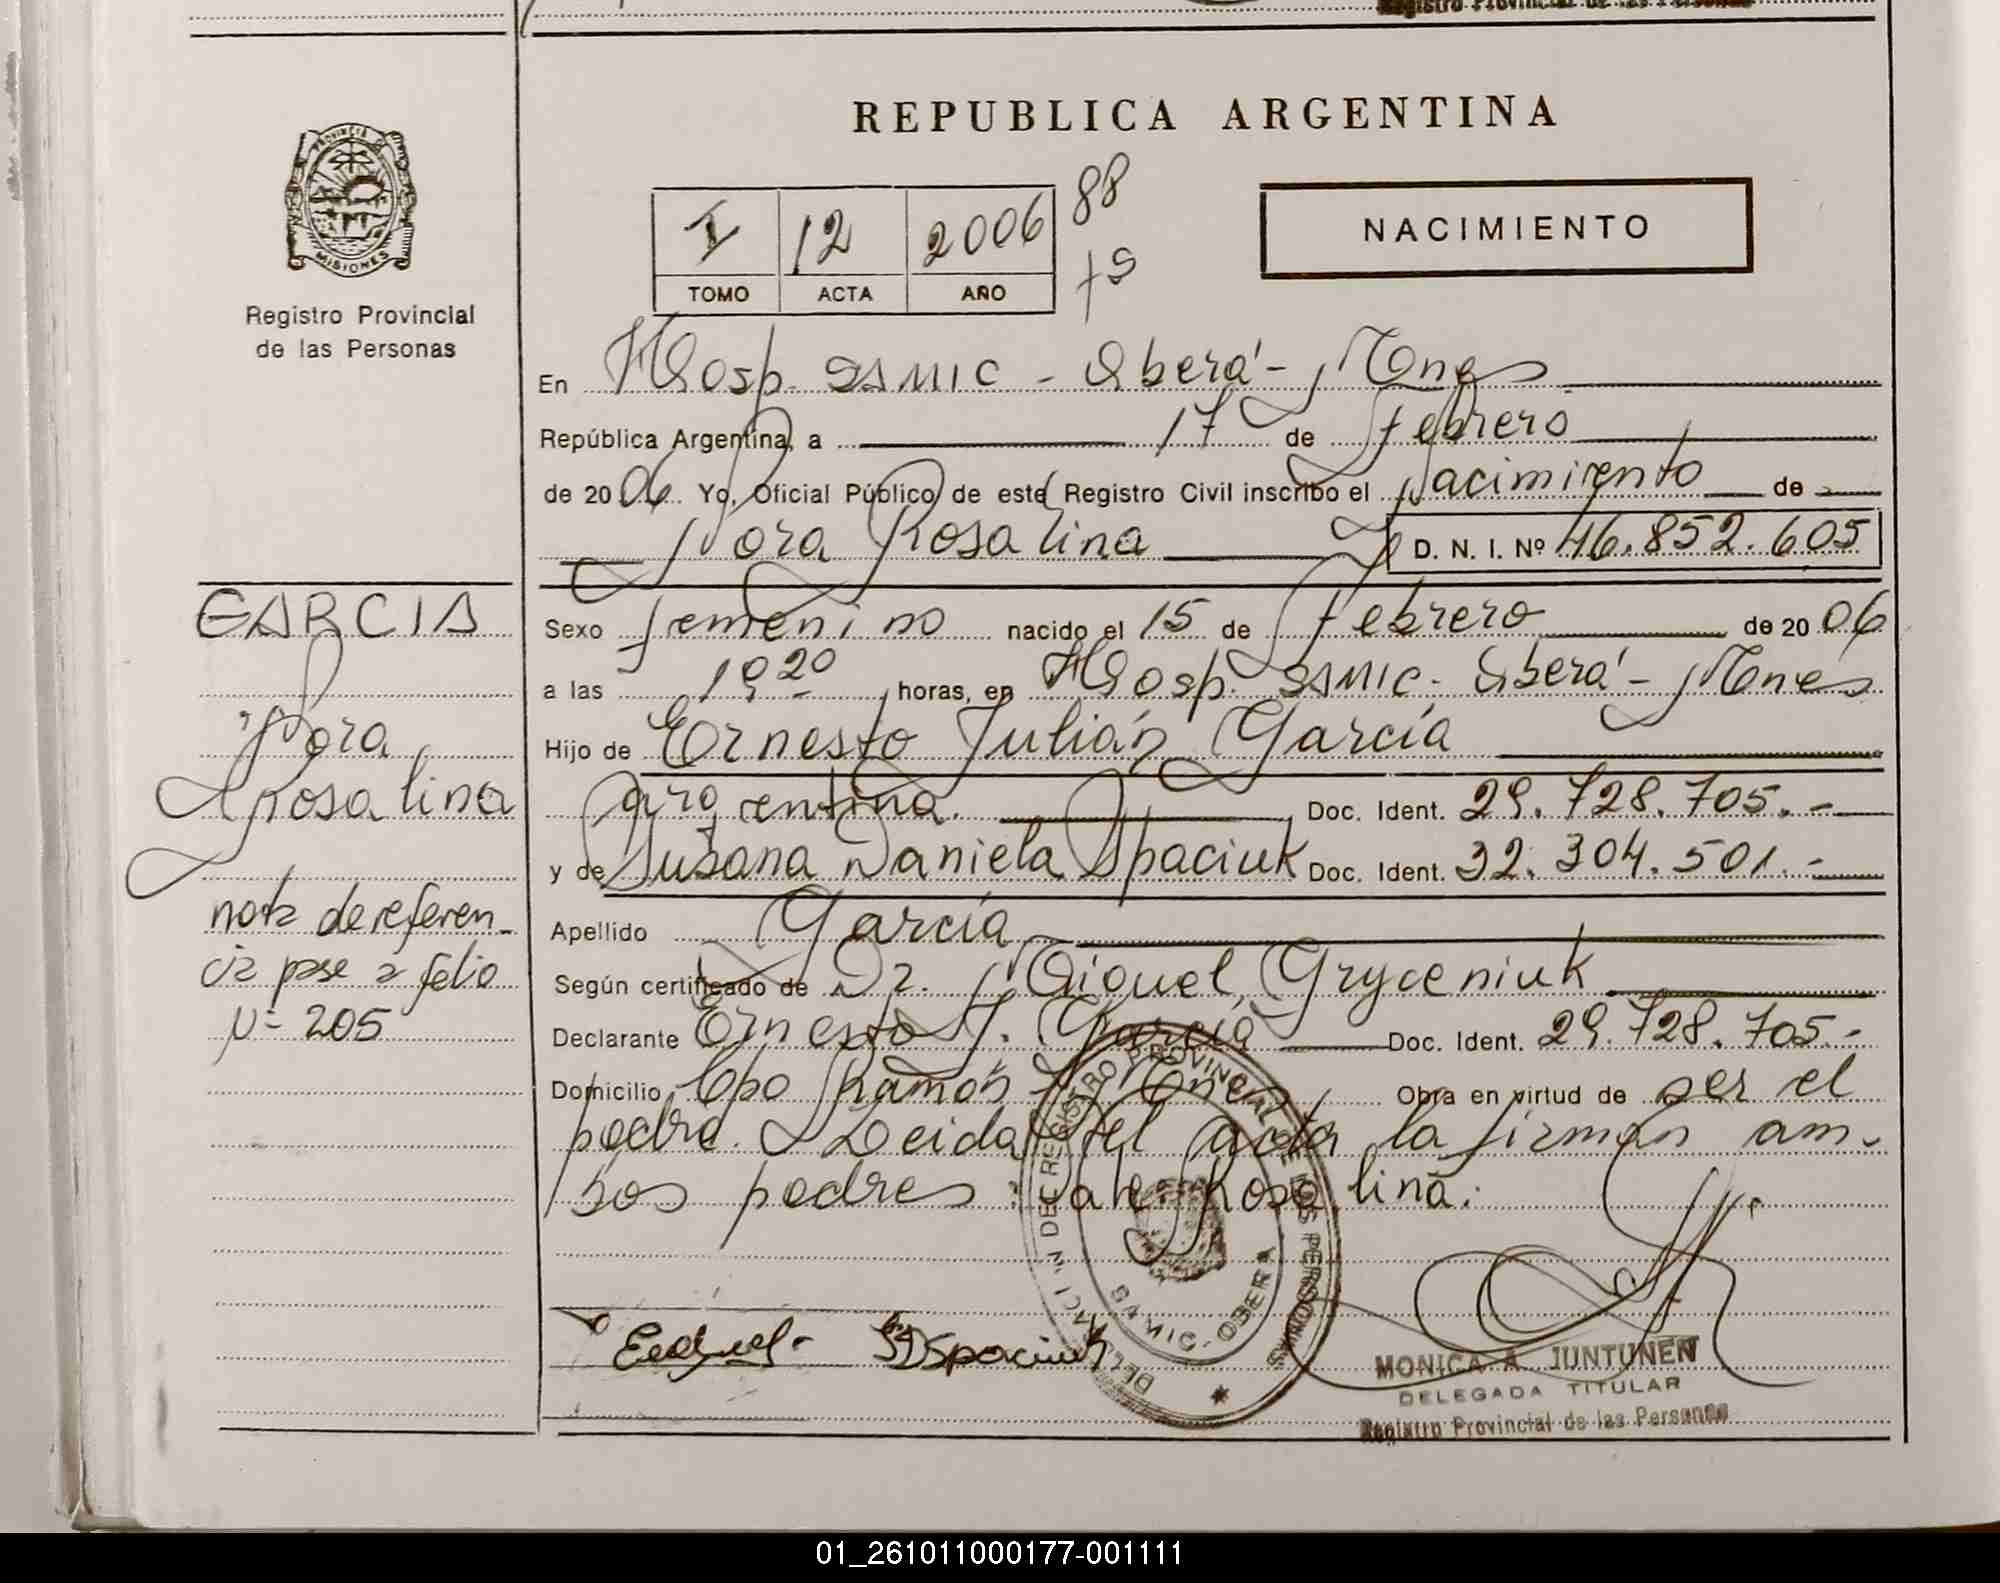 Registro Provincial de las Personas
REPUBLICA ARGENTINA
PROVINCIA DE
MISIONES
Registro Provincial
de las Personas
I 12 2006 88
TOMO ACTA AÑO
NACIMIENTO
En Hosp. SAMIC - Oberá - Mnes
República Argentina, a 17 de febrero
de 2006 Yo, Oficial Público de este Registro Civil inscribo el Nacimiento de
Nora Rosalina D. N. I. Nº 46.852.605
GARCIA
Nora
Rosalina
nota de referen-
cia pase a folio
Nº 205
Sexo femenino nacido el 15 de febrero de 2006
a las 19 20 horas, en Hosp. SAMIC - Oberá - Mnes
Hijo de Ernesto Julián García
argentina. Doc. Ident. 29.728.705.-
y de Susana Daniela Spaciuk Doc. Ident. 32.304.501.-
Apellido García
Según certificado de Dr. Miguel Gryceniuk
Declarante Ernesto J. García Doc. Ident. 29.728.705.-
Domicilio Cpo Ramón Mnes Obra en virtud de ser el
padre. Leída el acta la firman am-
bos padres: vale Rosalina.
DELEGACION DEL REGISTRO PROVINCIAL DE LAS PERSONAS
SAMIC - OBERA
MISIONES
SDSpaciuk
MONICA A. JUNTUNEN
DELEGADA TITULAR
Registro Provincial de las Personas
01_261011000177-001111